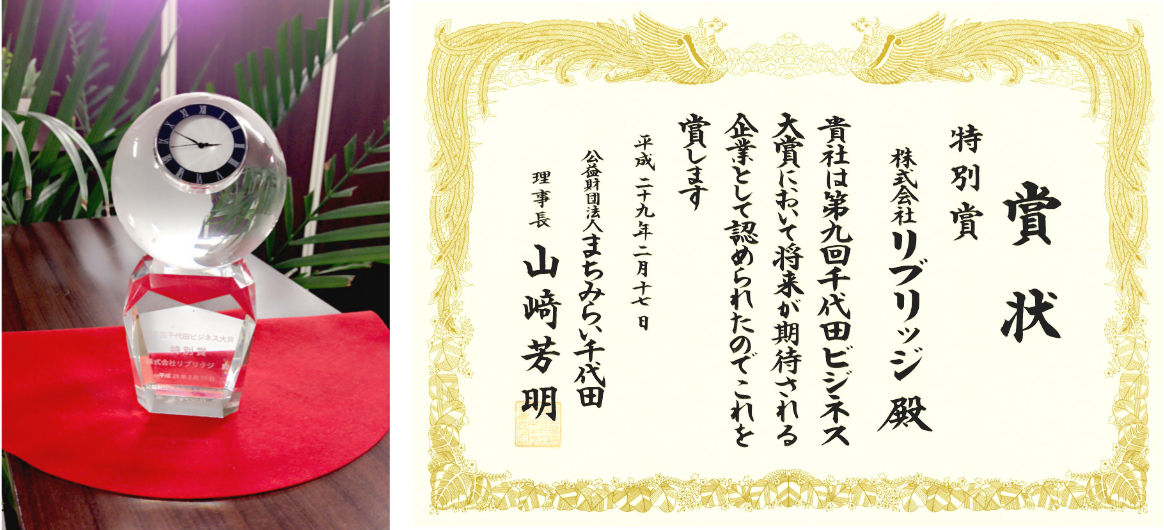 千代田ビジネス大賞
特別賞
株式会社リブリッジ
平成29年2月17日
賞状
特別賞
株式会社リブリッジ殿
貴社は第九回千代田ビジネス
大賞において将来が期待される
企業として認められたのでこれを
賞します
平成二十九年二月十七日
公益財団法人まちみらい千代田
理事長 山﨑芳明